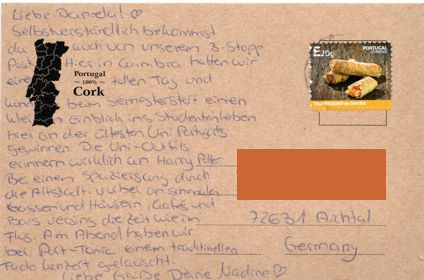 Liebe Daniela! ♡
Selbstverständlich bekommst
du auch von unserem 3. Stopp
Post. Hier in Coimbra hatten wir
tollen Tag und
beim Semesterstart einen
Einblick ins Studentenleben
an der ältesten Uni Portugals
gewinnen. Die Uni-Outfits
erinnern wirklich an Harry Potter
Bei einem Spaziergang durch
die Altstadt vorbei an schmalen
Gassen und Häusern, Cafés und
Bars verging die Zeit wie im
Flug. Am Abend haben wir
bei Port-Tonic einem traditionellen
Fado Konzert gelauscht.
Liebe Grüße Deine Nadine ♡
Portugal
100%
Cork
E20g
PORTUGAL
72631 Aichtal
Germany